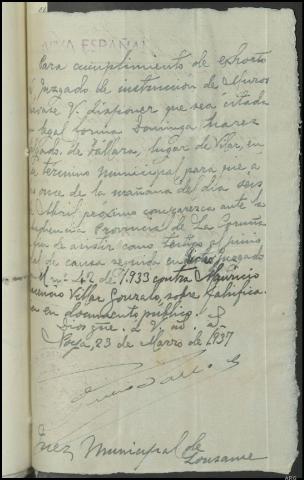 VIVA ESPAÑA
Para cumplimiento de exhorto
Juzgado de instrucción de Muros
V. disponer que sea citada
legal forma Dominga Suarez
de Tállara, lugar de Vilar, en
término municipal para que a
once de la mañana del dia seis
Abril próximo comparezca ante la
Audiencia Provincial de La Coruña
de asistir como testigo al juicio
de causa seguida en dicho juzgado
nº 42 de 1.933 contra Mauricio
Villar Gonzalo, sobre falsifica-
en documento público.
Dios gue. a V. m. a.
Noya, 23 de Marzo de 1937
Juez Municipal de
Lousame